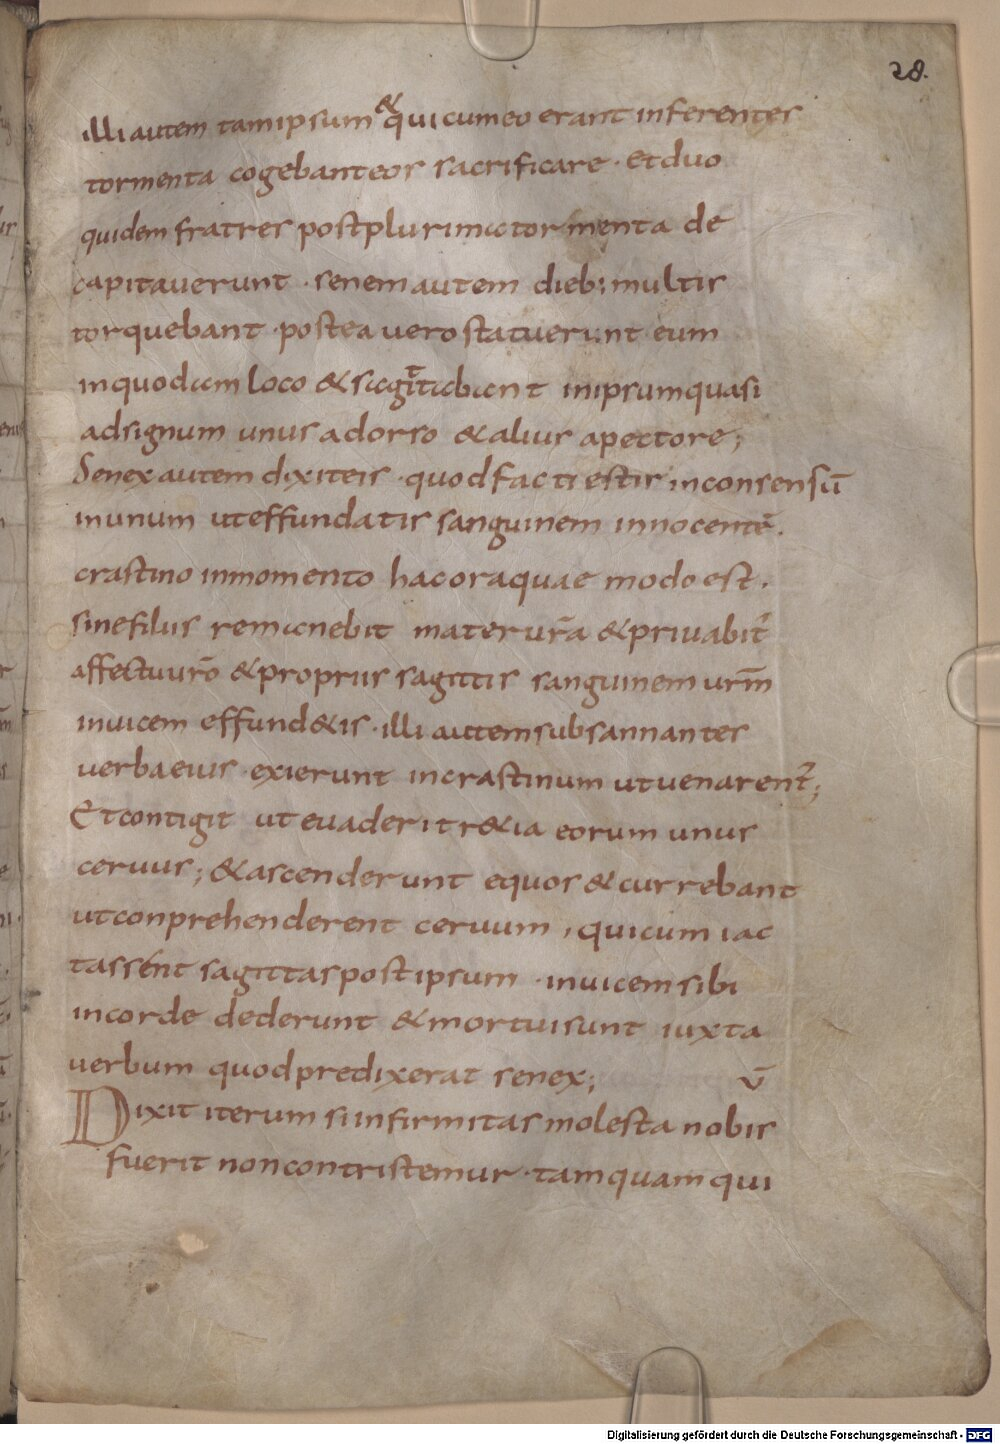 28.
illi autem tam ipsum & qui cum eo erant inferentes
tormenta cogebant eos sacrificare · Et duo
quidem fratres post plurima tormenta de
capitaverunt · senem autem dieb; multis
torquebant · postea vero statuerunt eum
in quodam loco & sagittabant in ipsum quasi
ad signum unus a dorso & alius a pectore;
Senex autem dixit eis · quod facti estis in consensū
in unum ut effundatis sanguinem innocentē.
crastino in momento hac ora quae modo est.
sine filiis remanebit mater ur̄a & privabit̄
affectu ur̄o & propriis sagittis sanguinem ur̄m
invicem effund&is · illi autem subsannantes
verba eius · exierunt in crastinum ut venarent̄;
Et contigit ut evaderit r&ia eorum unus
cervus; & ascenderunt equos & currebant
ut conprehenderent cervum, qui cum iac
tassent sagittas post ipsum · invicem sibi
in corde dederunt & mortui sunt iuxta
verbum quod predixerat senex;
ū
Dixit iterum si infirmitas molesta nobis
fuerit non contristemur · tamquam qui
Digitalisierung gefördert durch die Deutsche Forschungsgemeinschaft - DFG